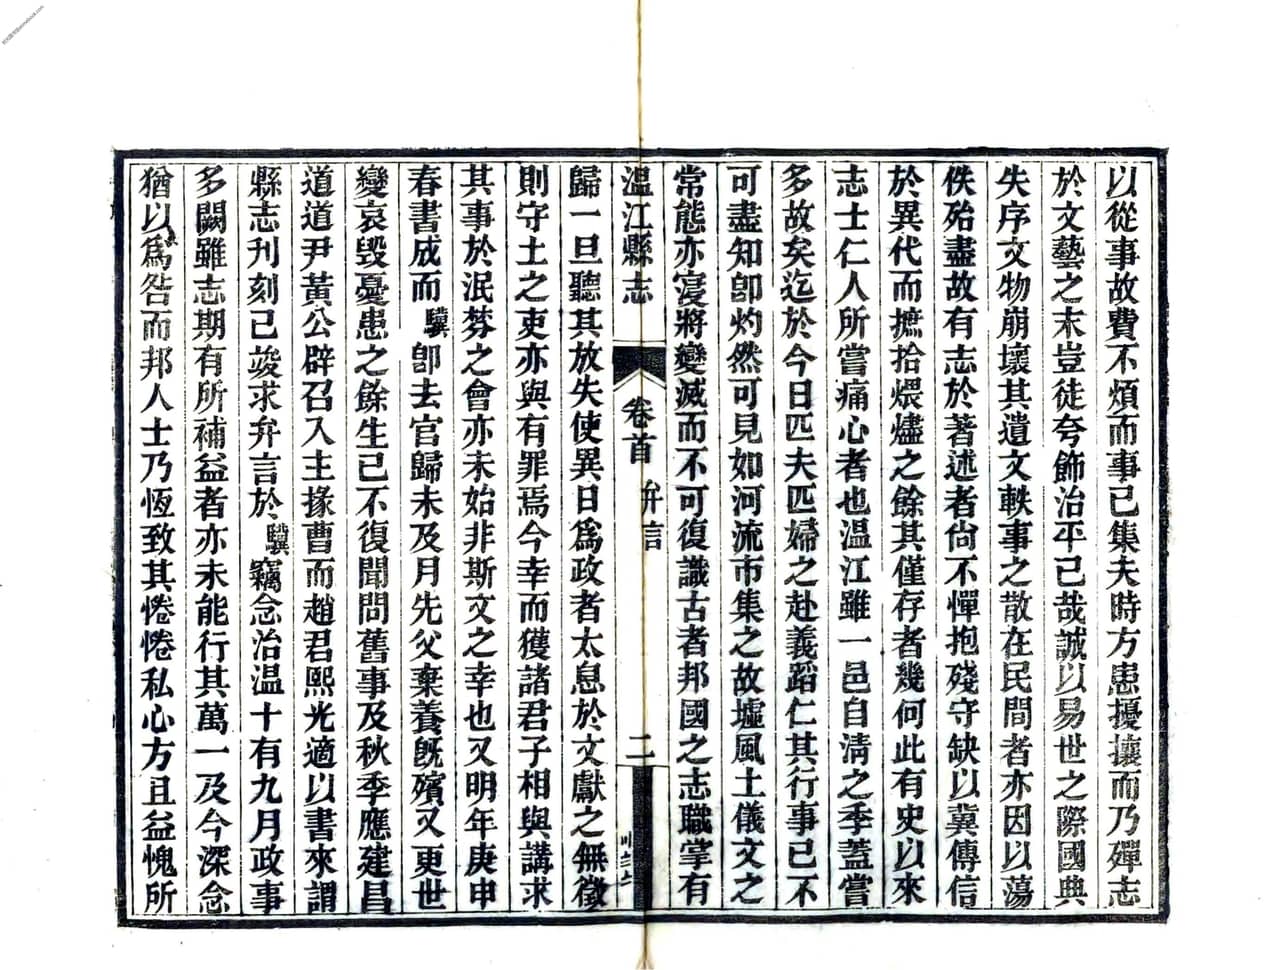 以從事故費不煩而事已集夫時方患擾攘而乃殫志
於文藝之末豈徒夸飾治平已哉誠以易世之際國典
失序文物崩壞其遺文軼事之散在民間者亦因以蕩
佚殆盡故有志於著述者尙不憚抱殘守缺以冀傳信
於異代而摭拾煨燼之餘其僅存者幾何此有史以來
志士仁人所嘗痛心者也温江雖一邑自淸之季蓋嘗
多故矣迄於今日匹夫匹婦之赴義蹈仁其行事已不
可盡知卽灼然可見如河流市集之故墟風土儀文之
常態亦寖將變滅而不可復識古者邦國之志職掌有
温江縣志
卷首
弁言
二
歸一旦聽其放失使異日爲政者太息於文獻之無徵
則守土之吏亦與有罪焉今幸而獲諸君子相與講求
其事於泯棼之會亦未始非斯文之幸也又明年庚申
春書成而驥卽去官歸未及月先父棄養旣殯又更世
變哀毀憂患之餘生已不復聞問舊事及秋季應建昌
道道尹黃公辟召入主掾曹而趙君熙光適以書來謂
縣志刋刻已竣求弁言於驥竊念治温十有九月政事
多闕雖志期有所補益者亦未能行其萬一及今深念
猶以爲咎而邦人士乃恆致其惓惓私心方且益愧所